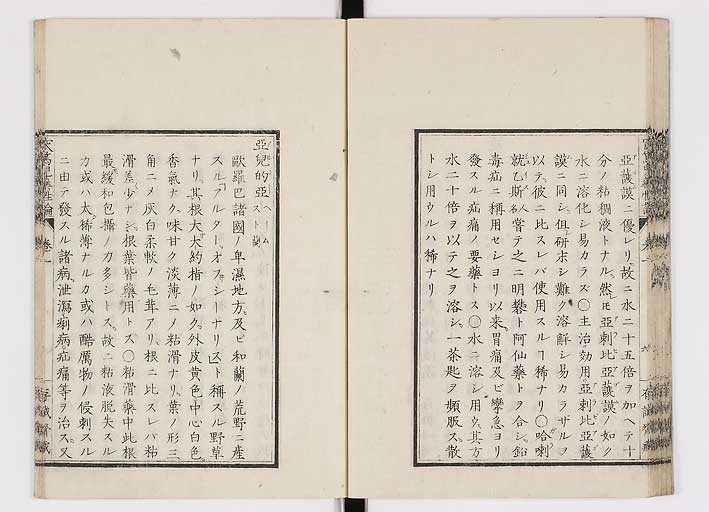 亞護謨ニ優レリ故ニ水二十五倍ヲ加ヘテ十
分ノ粘稠液トナル然レ𪜈亞剌比亞護謨ノ如ク
水ニ溶化シ易カラズ〇主治効用亞剌比亞護
謨ニ同シ但研末シ難ク溶解シ易カラザルヲ
以テ彼ニ比スレバ使用スルヿ稀ナリ〇哈喇
就乙斯人嘗テ之ニ明礬ト阿仙藥トヲ合シ鉛
毒疝ニ稱用セシヨリ以来胃痛及ビ攣急ヨリ
發スル疝痛ノ要藥トス〇水ニ溶シ用ウ其方
水二十倍ヲ以テ之ヲ溶シ一茶匙ヲ頻服ス散
トシ用ウルハ稀ナリ
亞兒的亞
歐羅巴諸國ノ卑濕地方及ビ和蘭ノ荒野ニ産
スルアルター、オフシーナリスト稱スル野草
ナリ其根大大約指ノ如ク外皮黄色中心白色
香氣ナク味甘ク淡薄ニノ粘滑ナリ葉ノ形三
角ニメ灰白柔軟ノ毛茸アリ根ニ比スレバ粘
滑差少ナシ根葉皆藥用トス〇粘滑藥中此根
最緩和包攝ノ力多シトス故ニ粘液脱失スル
カ或ハ太稀薄ナルカ或ハ酷厲物ノ侵刺スル
ニ由テ發スル諸病泄瀉痢病疝痛等ヲ治ス又
卷一